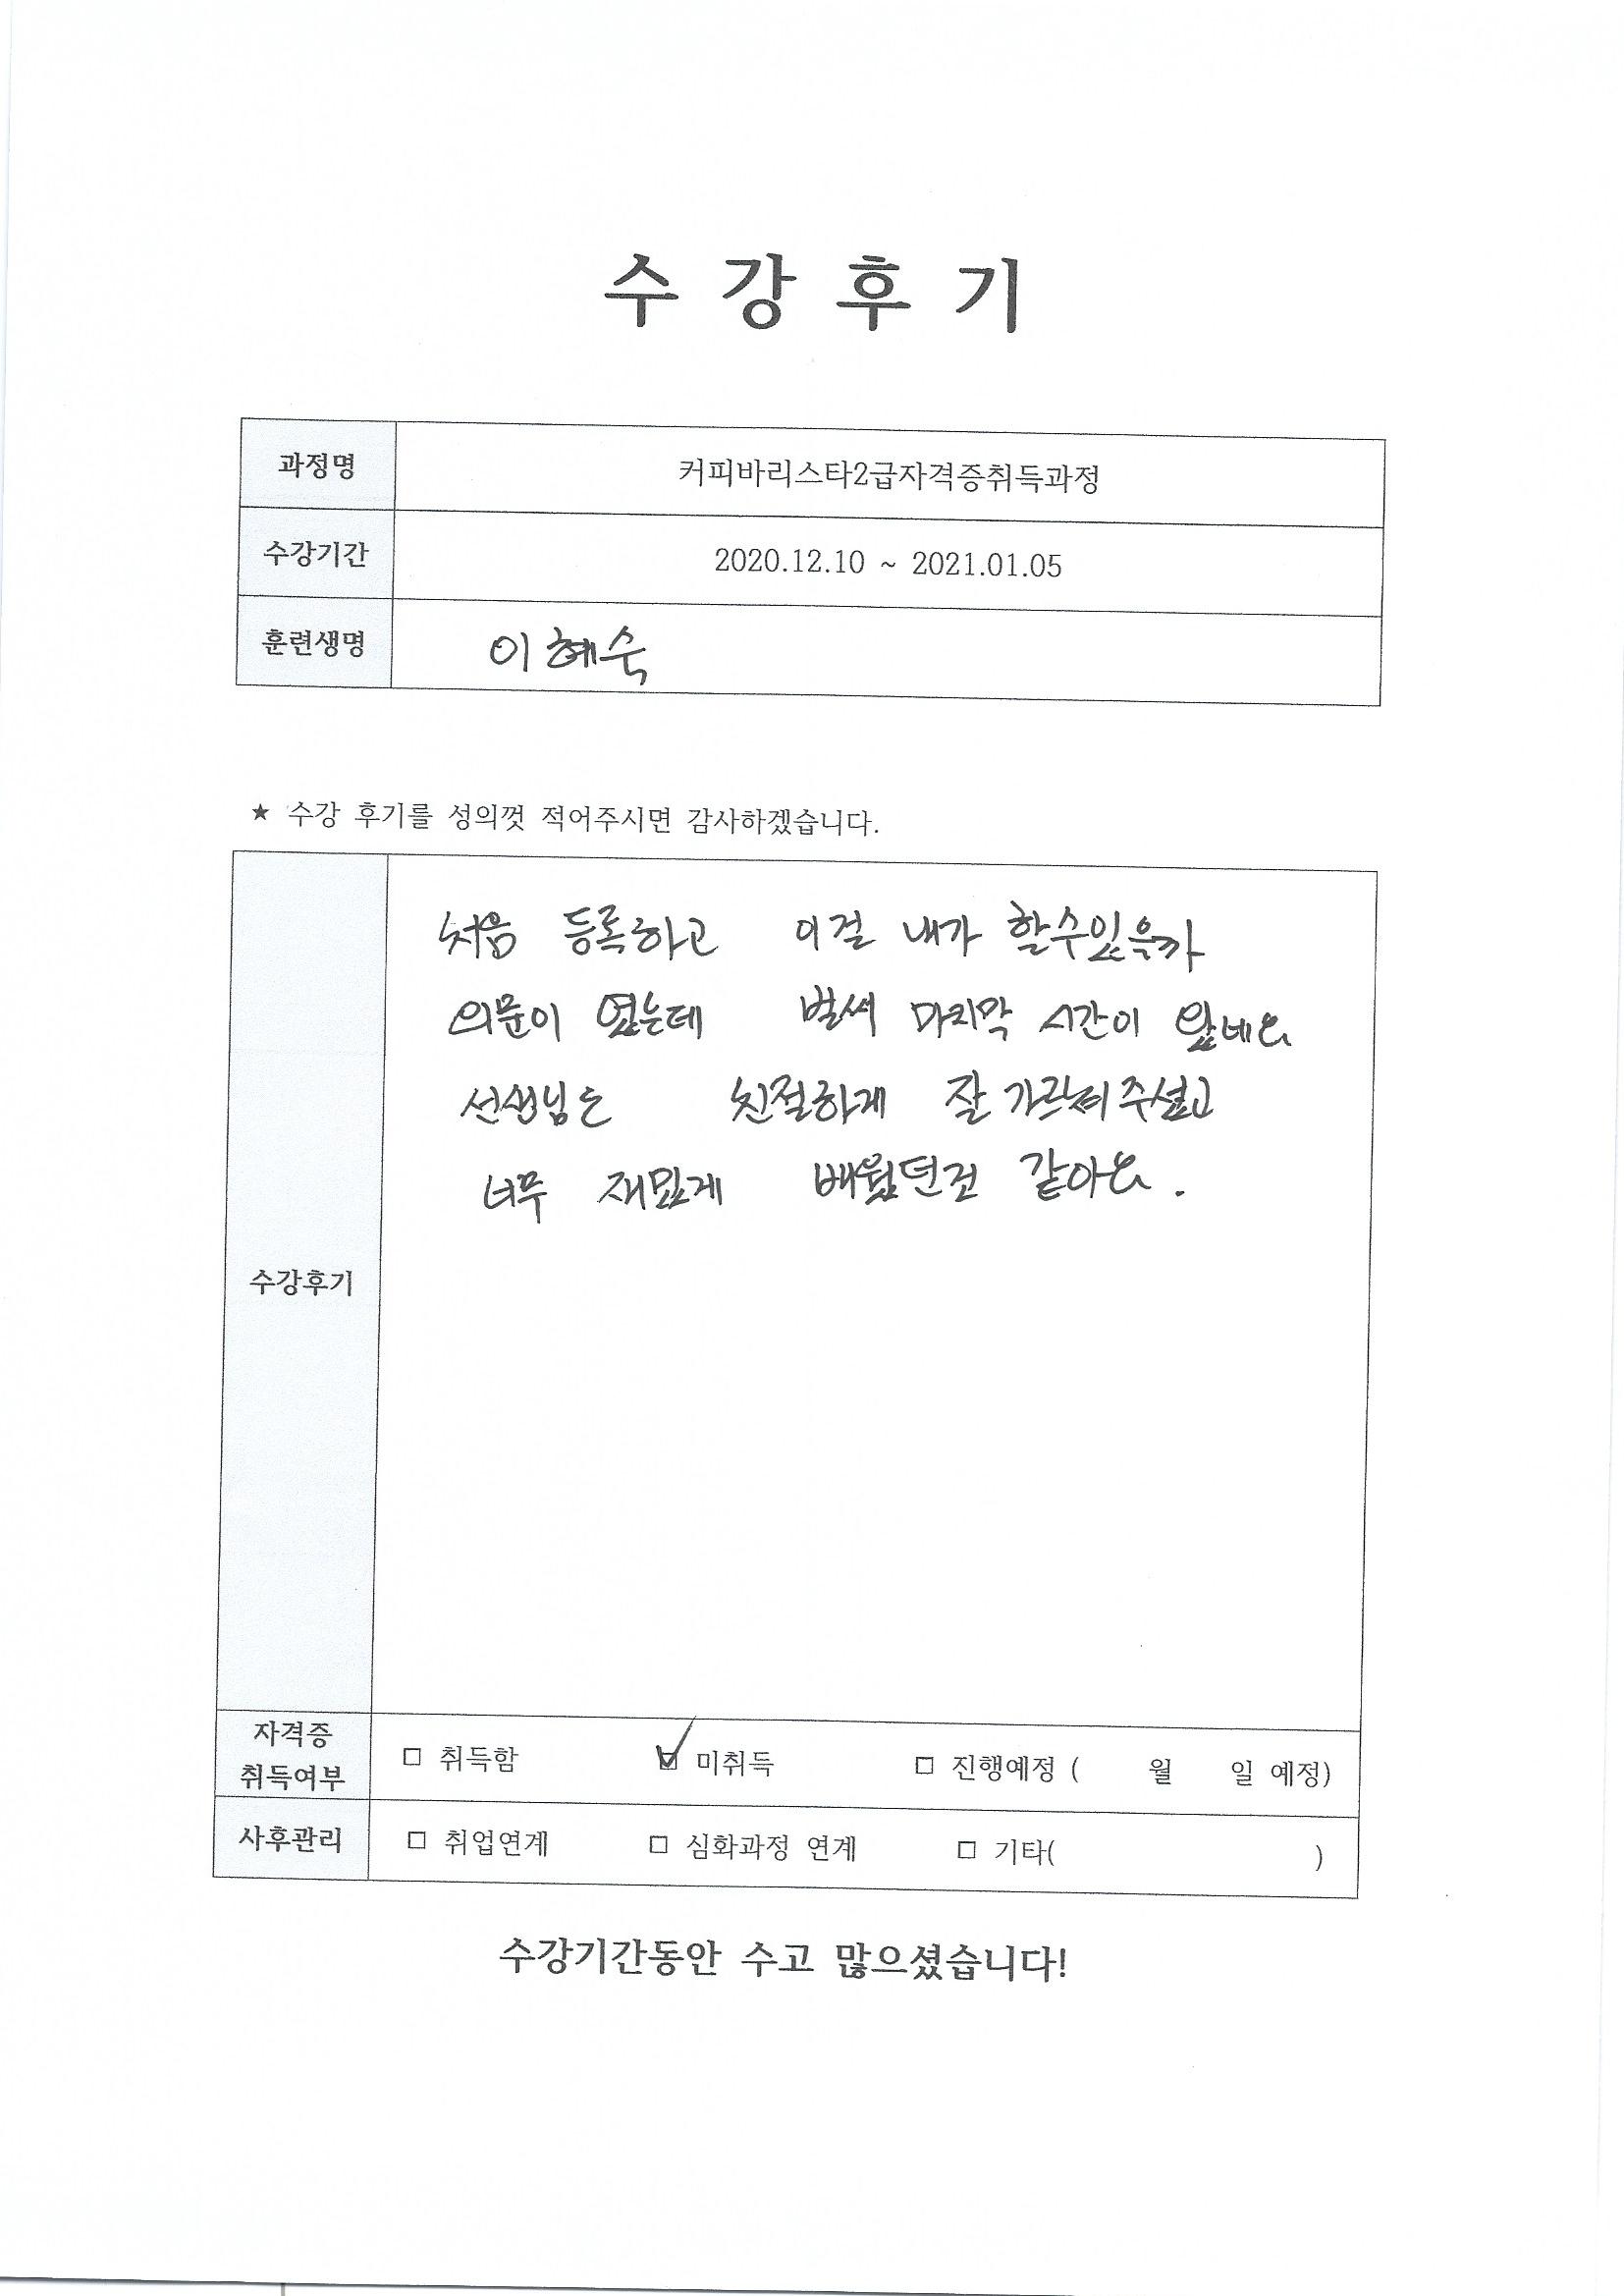 수 강 후 기
과정명 커피바리스타2급자격증취득과정
수강기간 2020.12.10 ~ 2021.01.05
훈련생명 이혜숙
★ 수강 후기를 성의껏 적어주시면 감사하겠습니다.
수강후기
처음 등록하고 이걸 내가 할수있을까
의문이 였는데 벌써 마지막 시간이 왔네요
선생님도 친절하게 잘 가르쳐주셨고
너무 재밌게 배웠던것 같아요.
자격증
취득여부
□ 취득함 ☑ 미취득 □ 진행예정 ( 월 일 예정)
사후관리 □ 취업연계 □ 심화과정 연계 □ 기타( )
수강기간동안 수고 많으셨습니다!